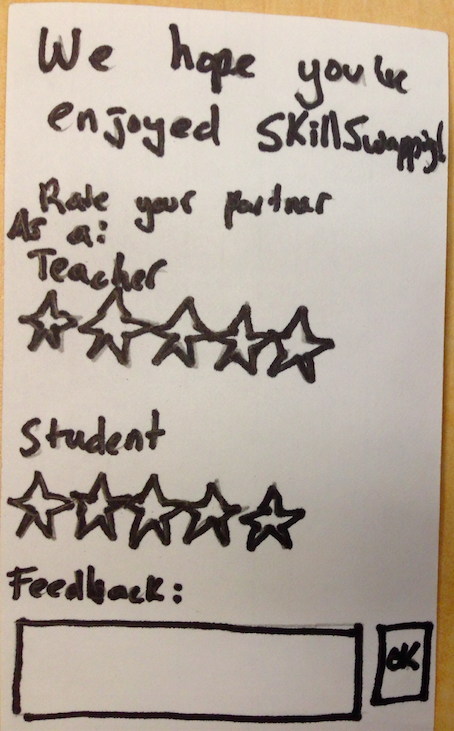 We hope you've
enjoyed SkillSwapping!
Rate your partner
As a:
Teacher
Student
Feedback:
OK